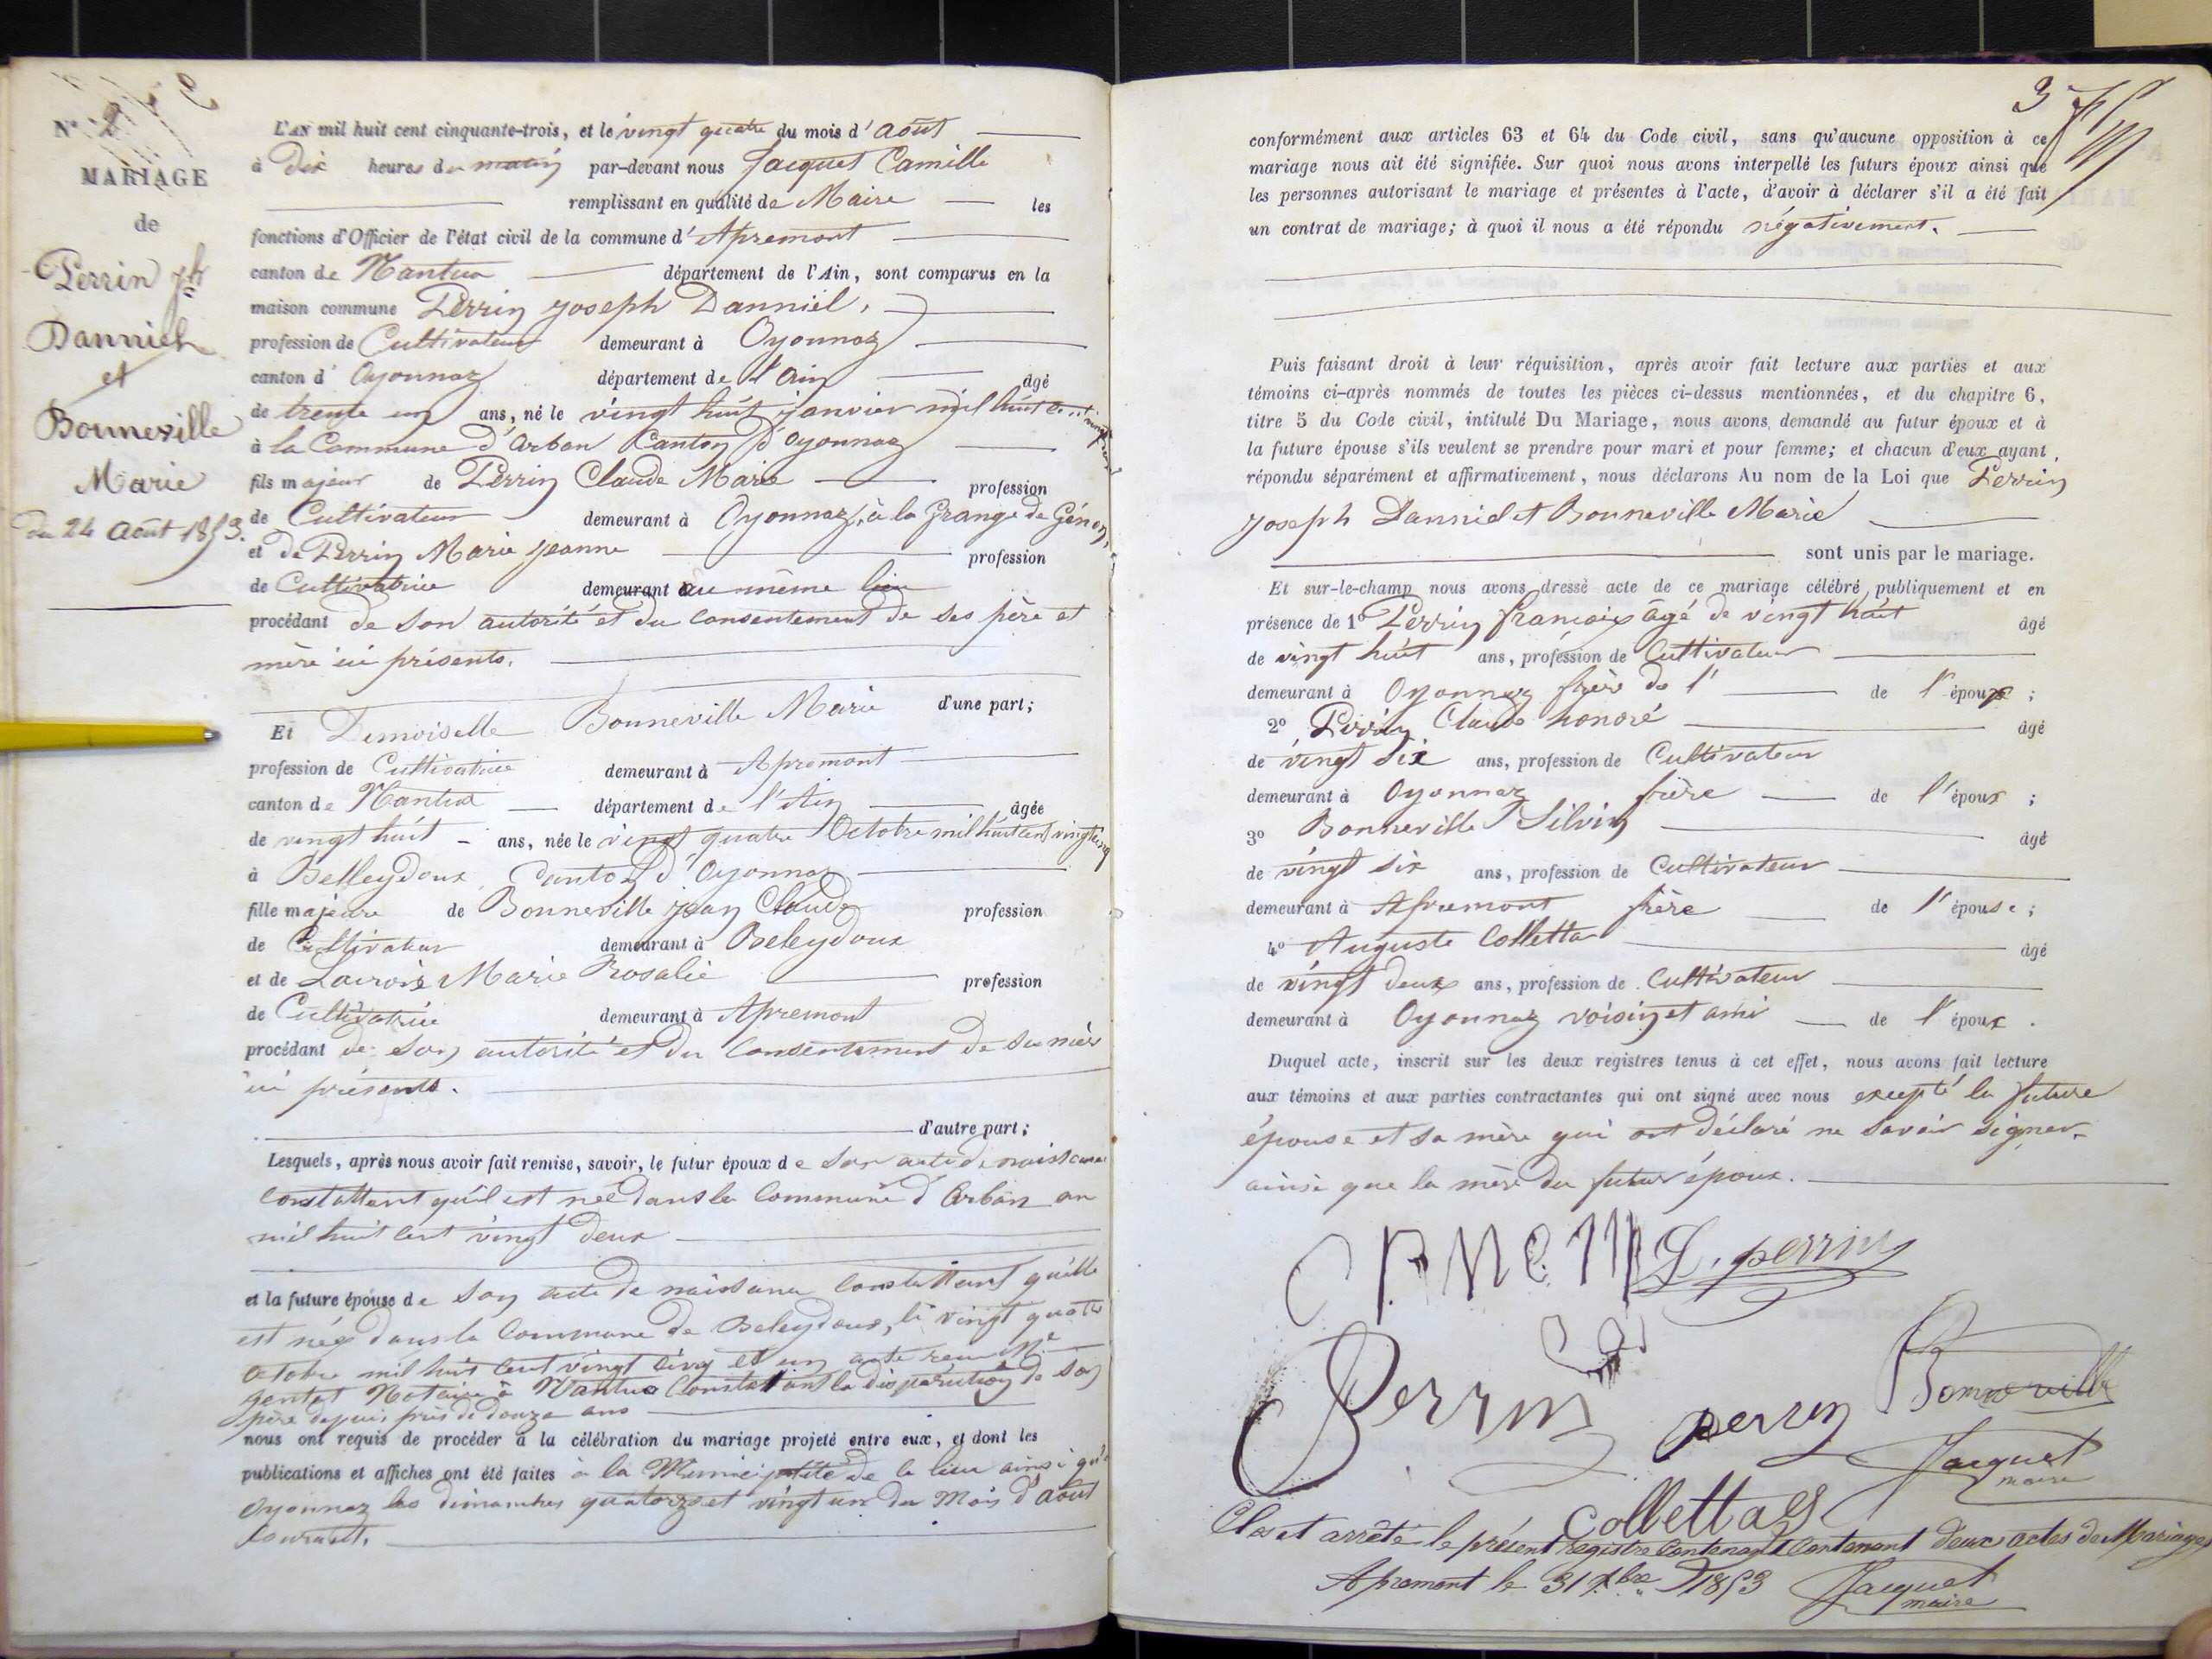 N° 2
MARIAGE
de
Perrin Jh
Danniel
et
Bonneville
Marie
du 24 Août 1853.
L'AN mil huit cent cinquante-trois, et le vingt quatre du mois d'Août
à Dix heures du matin par-devant nous Jacquet Camille
remplissant en qualité de Maire les
fonctions d'Officier de l'état civil de la commune d'Apremont
canton de Nantua département de l'Ain, sont comparus en la
maison commune Perrin Joseph Danniel,
profession de Cultivateur demeurant à Oyonnaz
canton d'Oyonnaz département de l'Ain âgé
de trente un ans, né le vingt huit janvier mil huit cent vingt deux
à la Commune d'Arban Canton d'Oyonnaz
fils majeur de Perrin Claude Marie profession
de Cultivateur demeurant à Oyonnaz, à la Grange de Génon,
et de Perrin Marie Jeanne profession
de Cultivatrice demeurant au même lieu
procédant de son autorité et du consentement de ses père et
mère ici présents.
d'une part;
Et Demoiselle Bonneville Marie
profession de Cultivatrice demeurant à Apremont
canton de Nantua département de l'Ain âgée
de vingt huit ans, née le vingt quatre Octobre mil huit cent vingt cinq
à Belleydoux, Canton d'Oyonnaz
fille majeure de Bonneville Jean Claude profession
de Cultivateur demeurant à Beleydoux
et de Lacroix Marie Rosalie profession
de Cultivatrice demeurant à Apremont
procédant de son autorité et du Consentement de sa mère
ici présente.
d'autre part;
Lesquels, après nous avoir fait remise, savoir, le futur époux de son acte de naissance
Constattent qu'il est née dans la Commune d'Arban an
mil huit cent vingt deux
et la future épouse de son acte de naissance Constattant qu'elle
est née dans la Commune de Beleydoux, le vingt quatre
Octobre mil huit cent vingt cinq et un acte reçu Me
gentet Notaire à Nantua Constatant la disparution de son
père depuis près de douze ans
nous ont requis de procéder à la célébration du mariage projeté entre eux, et dont les
publications et affiches ont été faites à la Municipalité de ce lieu ainsi qu'à
Oyonnaz les dimanches quatorze et vingt un du Mois d'août
Courant.
3
conformément aux articles 63 et 64 du Code civil, sans qu'aucune opposition à ce
mariage nous ait été signifiée. Sur quoi nous avons interpellé les futurs époux ainsi que
les personnes autorisant le mariage et présentes à l'acte, d'avoir à déclarer s'il a été fait
un contrat de mariage; à quoi il nous a été répondu négativement.
Puis faisant droit à leur réquisition, après avoir fait lecture aux parties et aux
témoins ci-après nommés de toutes les pièces ci-dessus mentionnées, et du chapitre 6,
titre 5 du Code civil, intitulé Du Mariage, nous avons demandé au futur époux et à
la future épouse s'ils veulent se prendre pour mari et pour femme; et chacun d'eux ayant
répondu séparément et affirmativement, nous déclarons Au nom de la Loi que Perrin
Joseph Danniel et Bonneville Marie
sont unis par le mariage.
Et sur-le-champ nous avons dressé acte de ce mariage célébré publiquement et en
présence de 1° Perrin francois âgé de vingt huit âgé
de vingt huit ans, profession de Cultivateur
demeurant à Oyonnaz frère de l' de l'époux;
2° Perrin Claude honoré âgé
de vingt six ans, profession de Cultivateur
demeurant à Oyonnaz frère de l'époux;
3° Bonneville Silvin âgé
de vingt six ans, profession de Cultivateur
demeurant à Apremont frère de l'épouse;
4° Auguste Colletta âgé
de vingt deux ans, profession de Cultivateur
demeurant à Oyonnaz voisin et ami de l'époux.
Duquel acte, inscrit sur les deux registres tenus à cet effet, nous avons fait lecture
aux témoins et aux parties contractantes qui ont signé avec nous excepté la future
épouse et sa mère qui ont déclaré ne savoir signer.
ainsi que la mère du futur époux.
perrin
Perrin
perrin
Bonneville
Jacquet
maire
Collettas
Clos et arrêté le présent registre Contenant Contenant deux actes de Mariages
Apremont le 31 Xbre 1853 Jacquet
maire